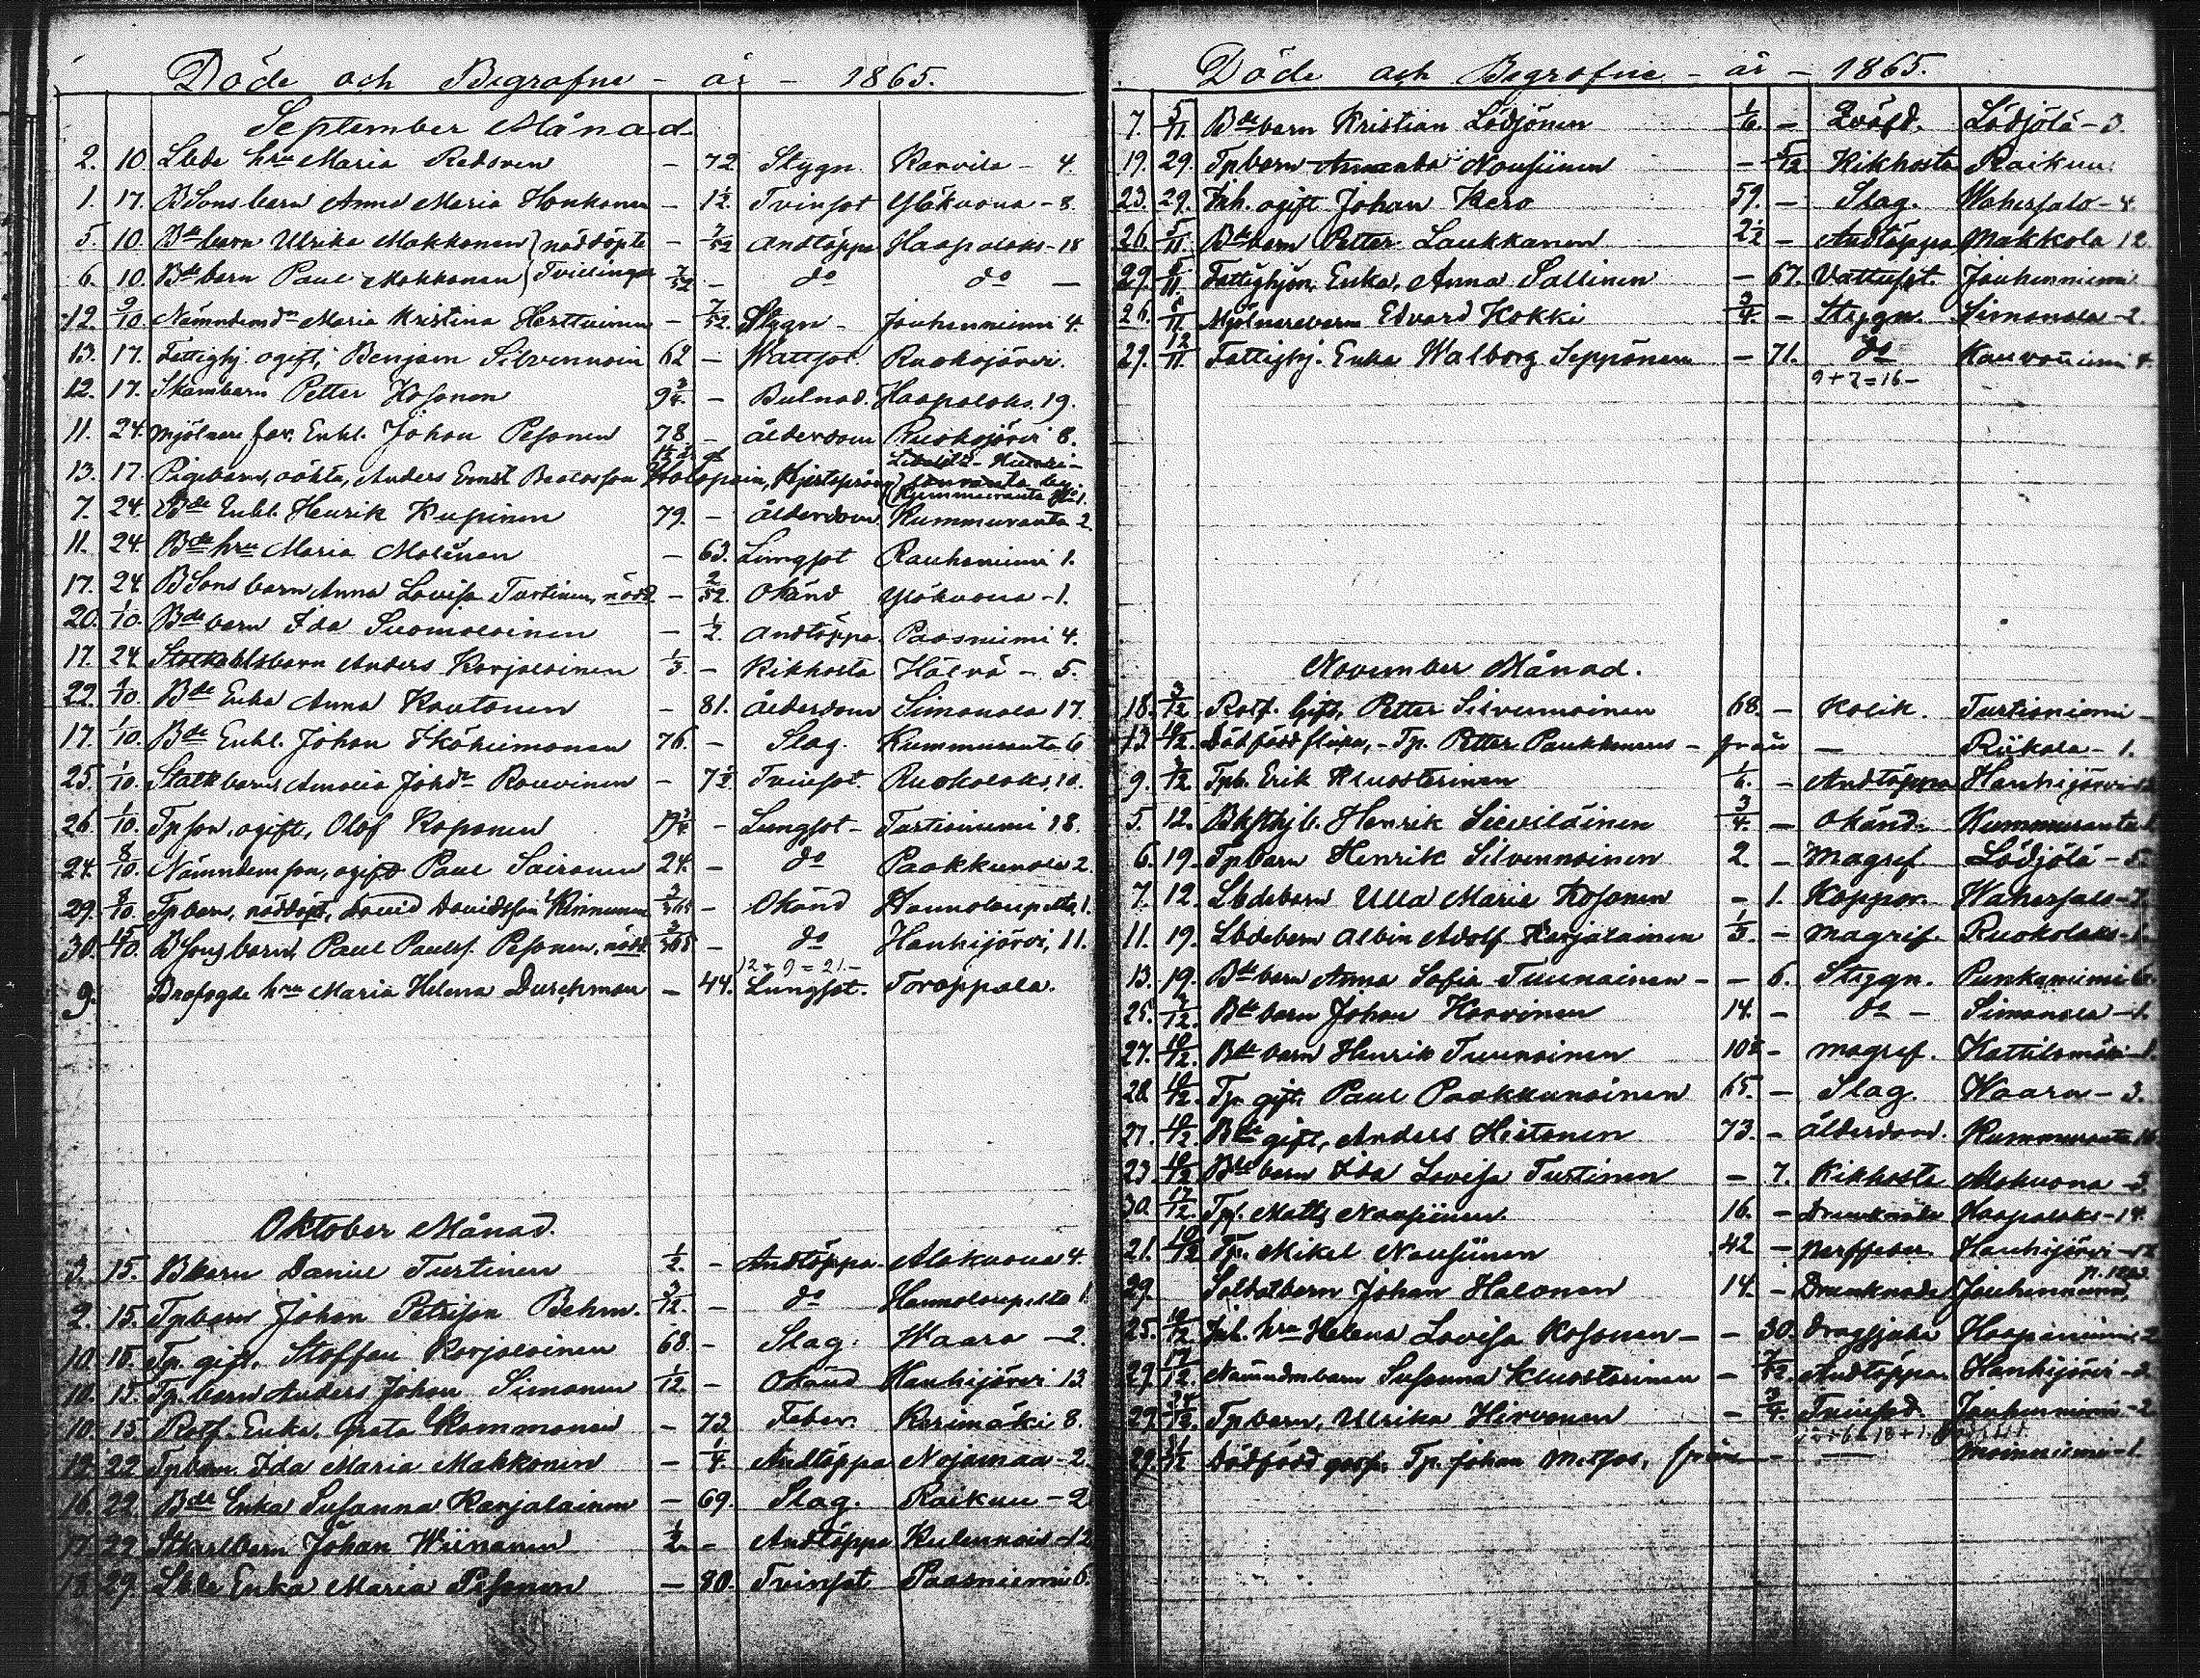 Döde och Begrafne - år - 1865.
September Månad
2. 10. Lbde hru Maria Redsven - 72 Stygn Karvila - 4.
1. 17. BSonsbarn Anna Maria Honkanen - 1½ Tvinsot Ylökuona - 8.
5. 10. Bde barn Ulrika Makkonen } nöddöpte - 7/52 Andtäppa Haapaloks - 18
6. 10. Bde barn Paul Makkonen } Tvillingar 7/52 - do do -
12. 9/10 Nämndemdr Maria Kristina Herttuinen - 7/52 Stygn - Jouhenniemi 4.
13. 17. Fattighj. ogift, Benjam Silvennoin 62 - Wattsot Ruokojärvi.
12. 17. Petter Kosonen 9¾ - Bulnad. Haapaloks. 19.
11. 24. Mjölnare far. Enkl. Johan Pesonen 78 - Ålderdom Ruokojärvi 8.
13. 17. Pigebarn, oäkta, Anders Ernst
7. 24. Bde Enkl. Henrik Kupinen 79. - Ålderdom Kummuranta 2.
11. 24. Bde hru Maria Malinen - 63. Lungsot Rauhaniemi 1.
17. 24. BSons barn Anna Lovisa Turtinen, nödd. - 2/52. Okänd Ylökuona - 1.
20. 1/10. Bde barn Ida Suomalainen - ½. Andtäppa Paasniemi 4.
17. 24. Anders Karjalainen 1/3. - Kikhosta Hälvä - 5.
22. 1/10. Bde Enka Anna Kautonen - 81. Ålderdom Simanala 17.
17. 1/10. Bde Enkl. Johan Ikäheimonen 76. - Slag. Kummuranta 6
25. 1/10. Amalia Johdr Rouvinen - 7½ Tvinsot. Ruokoloks, 10.
26. 1/10. Tpson, ogift, Olof Koponen - Lungsot - Turtianiemi 18.
24. 8/10. Nämndem son, ogift Paul Sairanen 24. - do Paakkunala 2.
29. 8/10. Tpbarn, nöddöpt, David Davidsson Kinnunen 3/365 - Okänd Hannolanpelto, 1.
30. 15/10. BSons barn, Paul Paulss. Pesonen, nödd. 2/365 - do Hanhijärvi, 11.
12 + 9 = 21.-
9. Brofogde hru Maria Helena Durchman - 44. Lungsot. Toroppala.
Oktober Månad.
3. 15. Bbarn Daniel Turtinen ½. - Andtäppa Alakuona 4.
2. 15. Tpbarn Johan Petrison Behm. 3/12. - do Hannolanpelto 1.
10. 15. Tp. gift, Staffan Karjalainen 68. - Slag. Waara - 2.
10. 15. Tp. barn Anders Johan Simanen 1/12 - Okänd Hanhijärvi 13
10. 15. Rotf. Enka, Greta Kammonen - 72 Feber. Kerimäki 8.
12. 22 Tpbarn Ida Maria Makkonen - ¼. Andtäppa Nojamaa - 2.
16. 22. Bde Enka Susanna Karjalainen - 69. Slag. Raikuu - 2
17. 22 Johan Wiinanen ½ - Andtäppa Kulennois - 12
18. 29. Lbde Enka Maria Pesonen - 80. Tvinsot Paasniemi 6.
Döde och Begrafne - år - 1865.
7. 5/11. Bde barn Kristian Lödjönen 1/6. - Lödjölä - 3.
19. 29. Tpbarn Amanda Nousiinen - 5/12 Kikhosta Raikuu.
23. 29. Inh. ogift Johan Kero 59. - Slag. Wahersalo - 4.
26. 5/11. Bde barn Petter Laukkanen 2½ - Andtäppa Makkola 12
29. 5/11. Fattighjon. Enka, Anna Sallinen - 67. Vattusot. Jouhenniemi
26. 5/11. Mjölnarebarn Edvard Kokki ¾. - Stygn. Simanala - 2.
29. 12/11. Fattighj. Enka Walborg Seppänen - 71. do Kauvoniemi 4.
9 + 7 = 16 -
November Månad.
18. 3/12 Rotf. Gift, Petter Silvennoinen 68. - Kolik. Turtianiemi -
13. Dödfödd flicka, - Tp. Petter Paukkunens - från - Riikola - 1.
9. Tpb. Erik Kluosterinen 1/6. - Andtäppa Hanhijärvi
5. 12. Henrik Sieviläinen ¾. - Okänd. Kummuranta
6. 19. Tpbarn Henrik Silvennoinen 2. - Magref Lödjölä - 5.
7. 12. Lbdebarn Ulla Maria Kosonen - 1. Koppor. Wahersalo - 7.
11. 19. Lbdebarn Albin Adolf Karjalainen 1/3. - Magref. Ruokoloks - 1.
13. 19. Bde barn Anna Sofia Tuunainen - - 6. Stygn. Punkaniemi 6.
25. Bde barn Johan Koovinen 14. - do - Simanala - 1.
27. 10/12. Bde barn Henrik Tuunainen - Magref. Kattilamäki - 1.
28. 10/12. Tp. gift, Paul Paakkunainen 65. - Slag. Waara - 3.
27. 10/12. Bde gift, Anders Hietanen 73. - Ålderdom. Kummuranta
23. 10/12 Bde barn Ida Lovisa Turtinen - 7. Kikhosta Alakuona - 3.
30. 17/12. Tps. Matts Nousiinen. 16. - Drunknade Haapaloks - 14.
21. 10/12 Tp. Mikel Nousiinen 42 - Nerffeber. Hanhijärvi
29. Soldatbarn Johan Halonen 14. - Drunknade Jouhenniemi,
25. 10/12 Inh. hru Helena Lovisa Kosonen - - 30. Dragsjuka Haapaniemi 2
29. 17/12. Nämndmbarn Susanna Kluosterinen - 7/52. Andtäppa Hanhijärvi - 2
29. 24/12. Tpbarn, Ulrika Hirvonen - ¾. Tvinsot. Jouhenniemi - 2
29. 31/12 Dödfödd gosse, Tp. Johan Matsos, från - Moinniemi - 1.